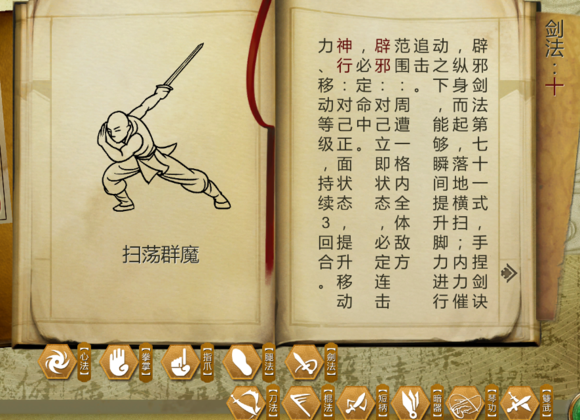 剑法：十
辟邪剑法第七十一式，手捏剑诀
，纵身而起，落地横扫；内力催
动之下，能够瞬间提升脚力进行
追击。
范围：周遭一格内全体敌方
辟邪：对己立即状态，必定连击
，必定命中。
神行：对己正面状态，提升移动
力、移动等级，持续3，回合。
扫荡群魔
【心法】
【拳掌】
【指爪】
【腿法】
【剑法】
【刀法】
【棍法】
【短柄】
【暗器】
【琴功】